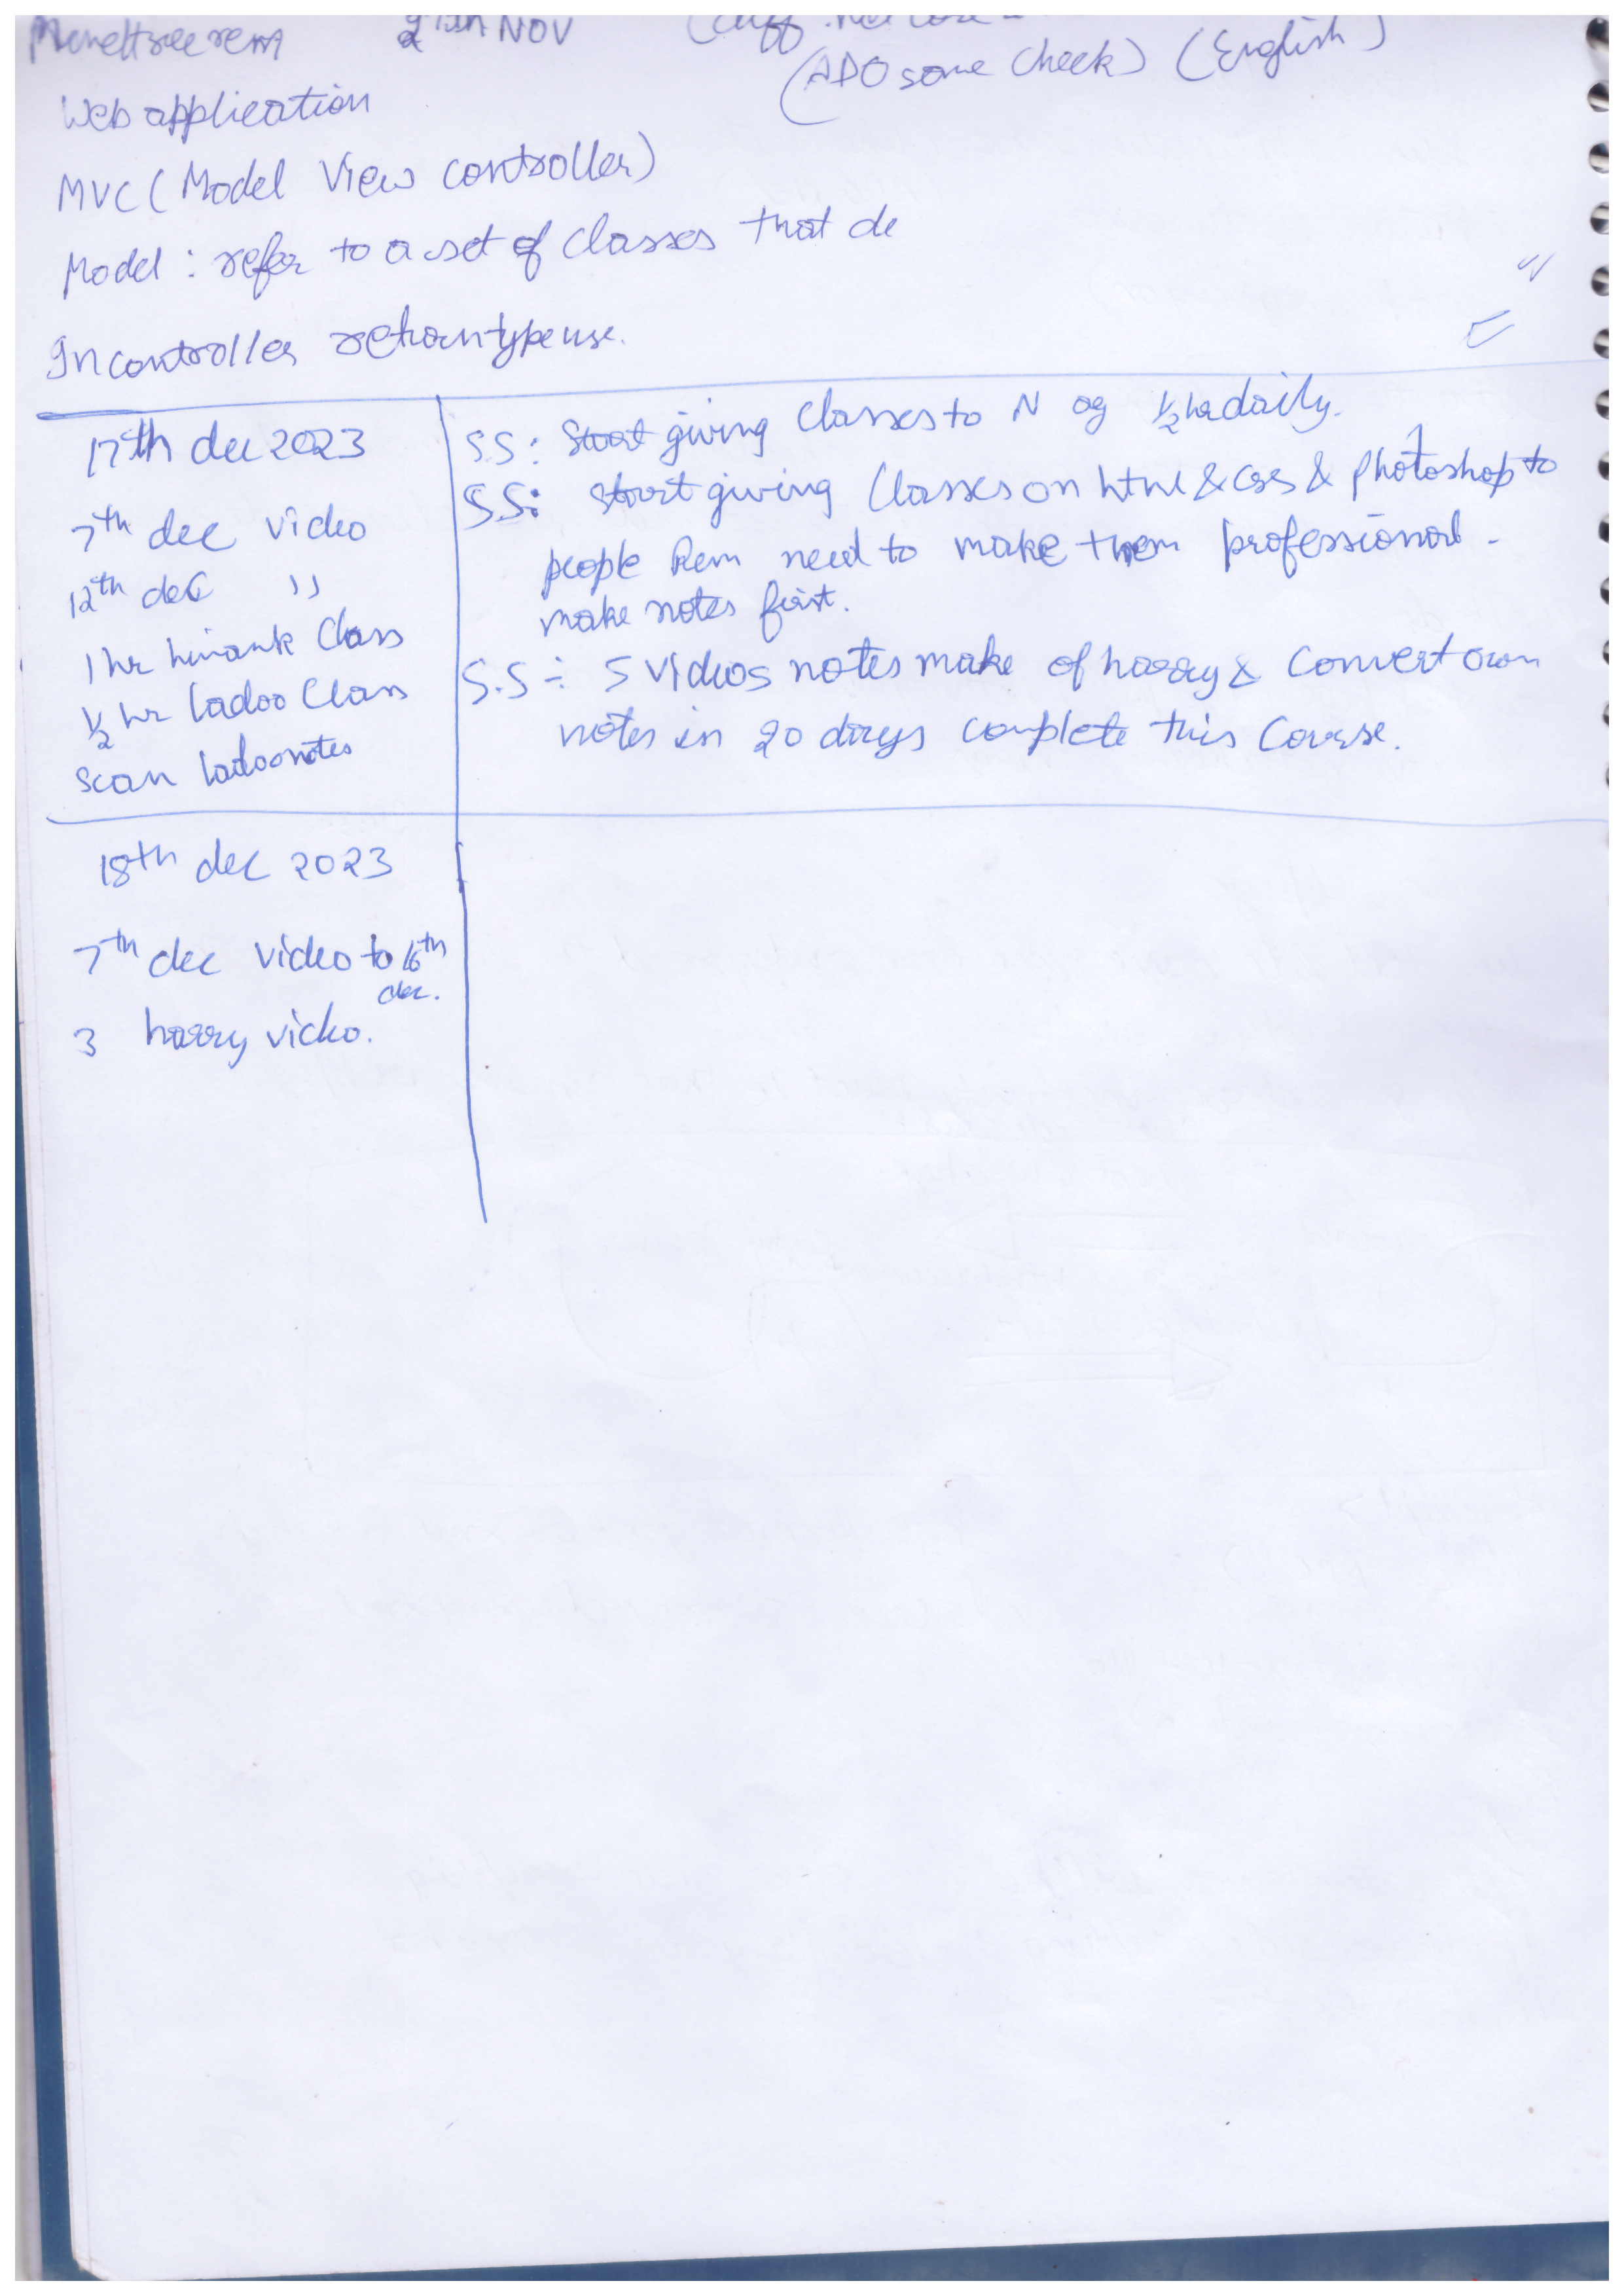 NOV
(ADO some check) (English)
Web application
MVC (Model View controller)
Model : refer to a set of classes that de
In controller return type use.
17th dec 2023
7th dec video
12th dec "
1 hr hinank Class
1/2 hr ladoo Class
scan ladoo notes
S.S: Start giving Classes to N og 1/2 hr daily.
S.S: start giving Classes on html & css & photoshop to
people Rem need to make them professional.
make notes first.
S.S : 5 videos notes make of harry & convert own
notes in 20 days complete this Course.
18th dec 2023
7th dec video to 16th
dec.
3 harry video.